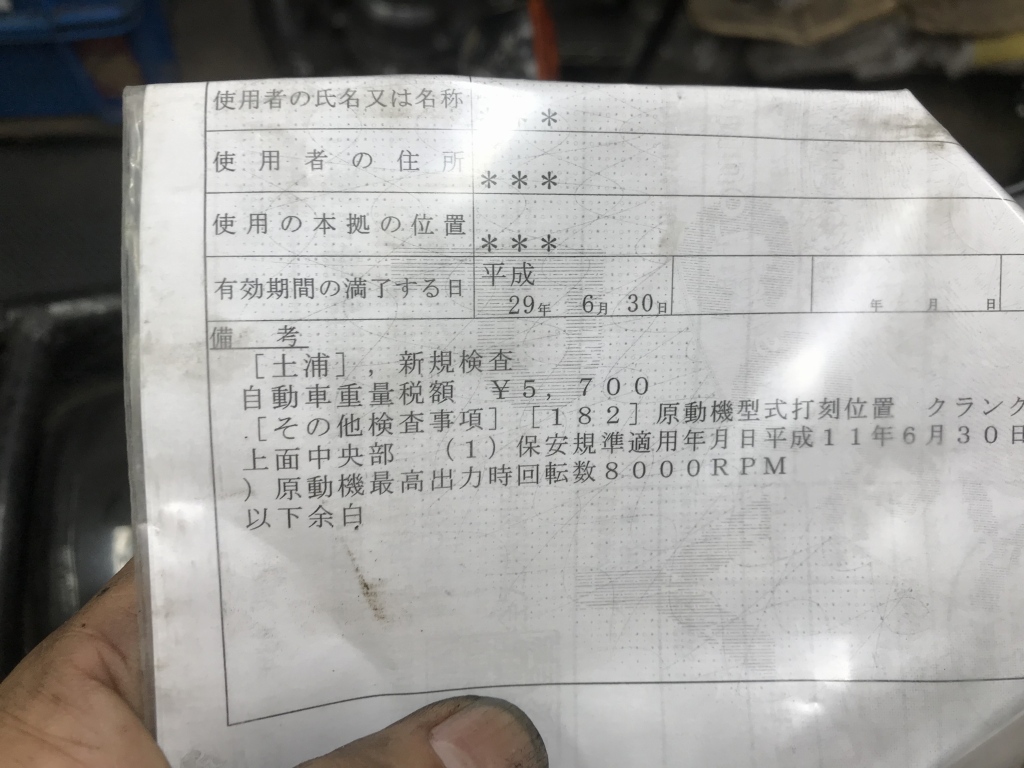 使用者の氏名又は名称
*
使用者の住所
***
使用の本拠の位置
***
有効期間の満了する日
平成
29年 6月 30日
年 月 日
備考
[土浦], 新規検査
自動車重量税額 ¥5,700
[その他検査事項] [182] 原動機型式打刻位置 クランク
上面中央部 (1) 保安規準適用年月日平成11年6月30日
) 原動機最高出力時回転数8000RPM
以下余白